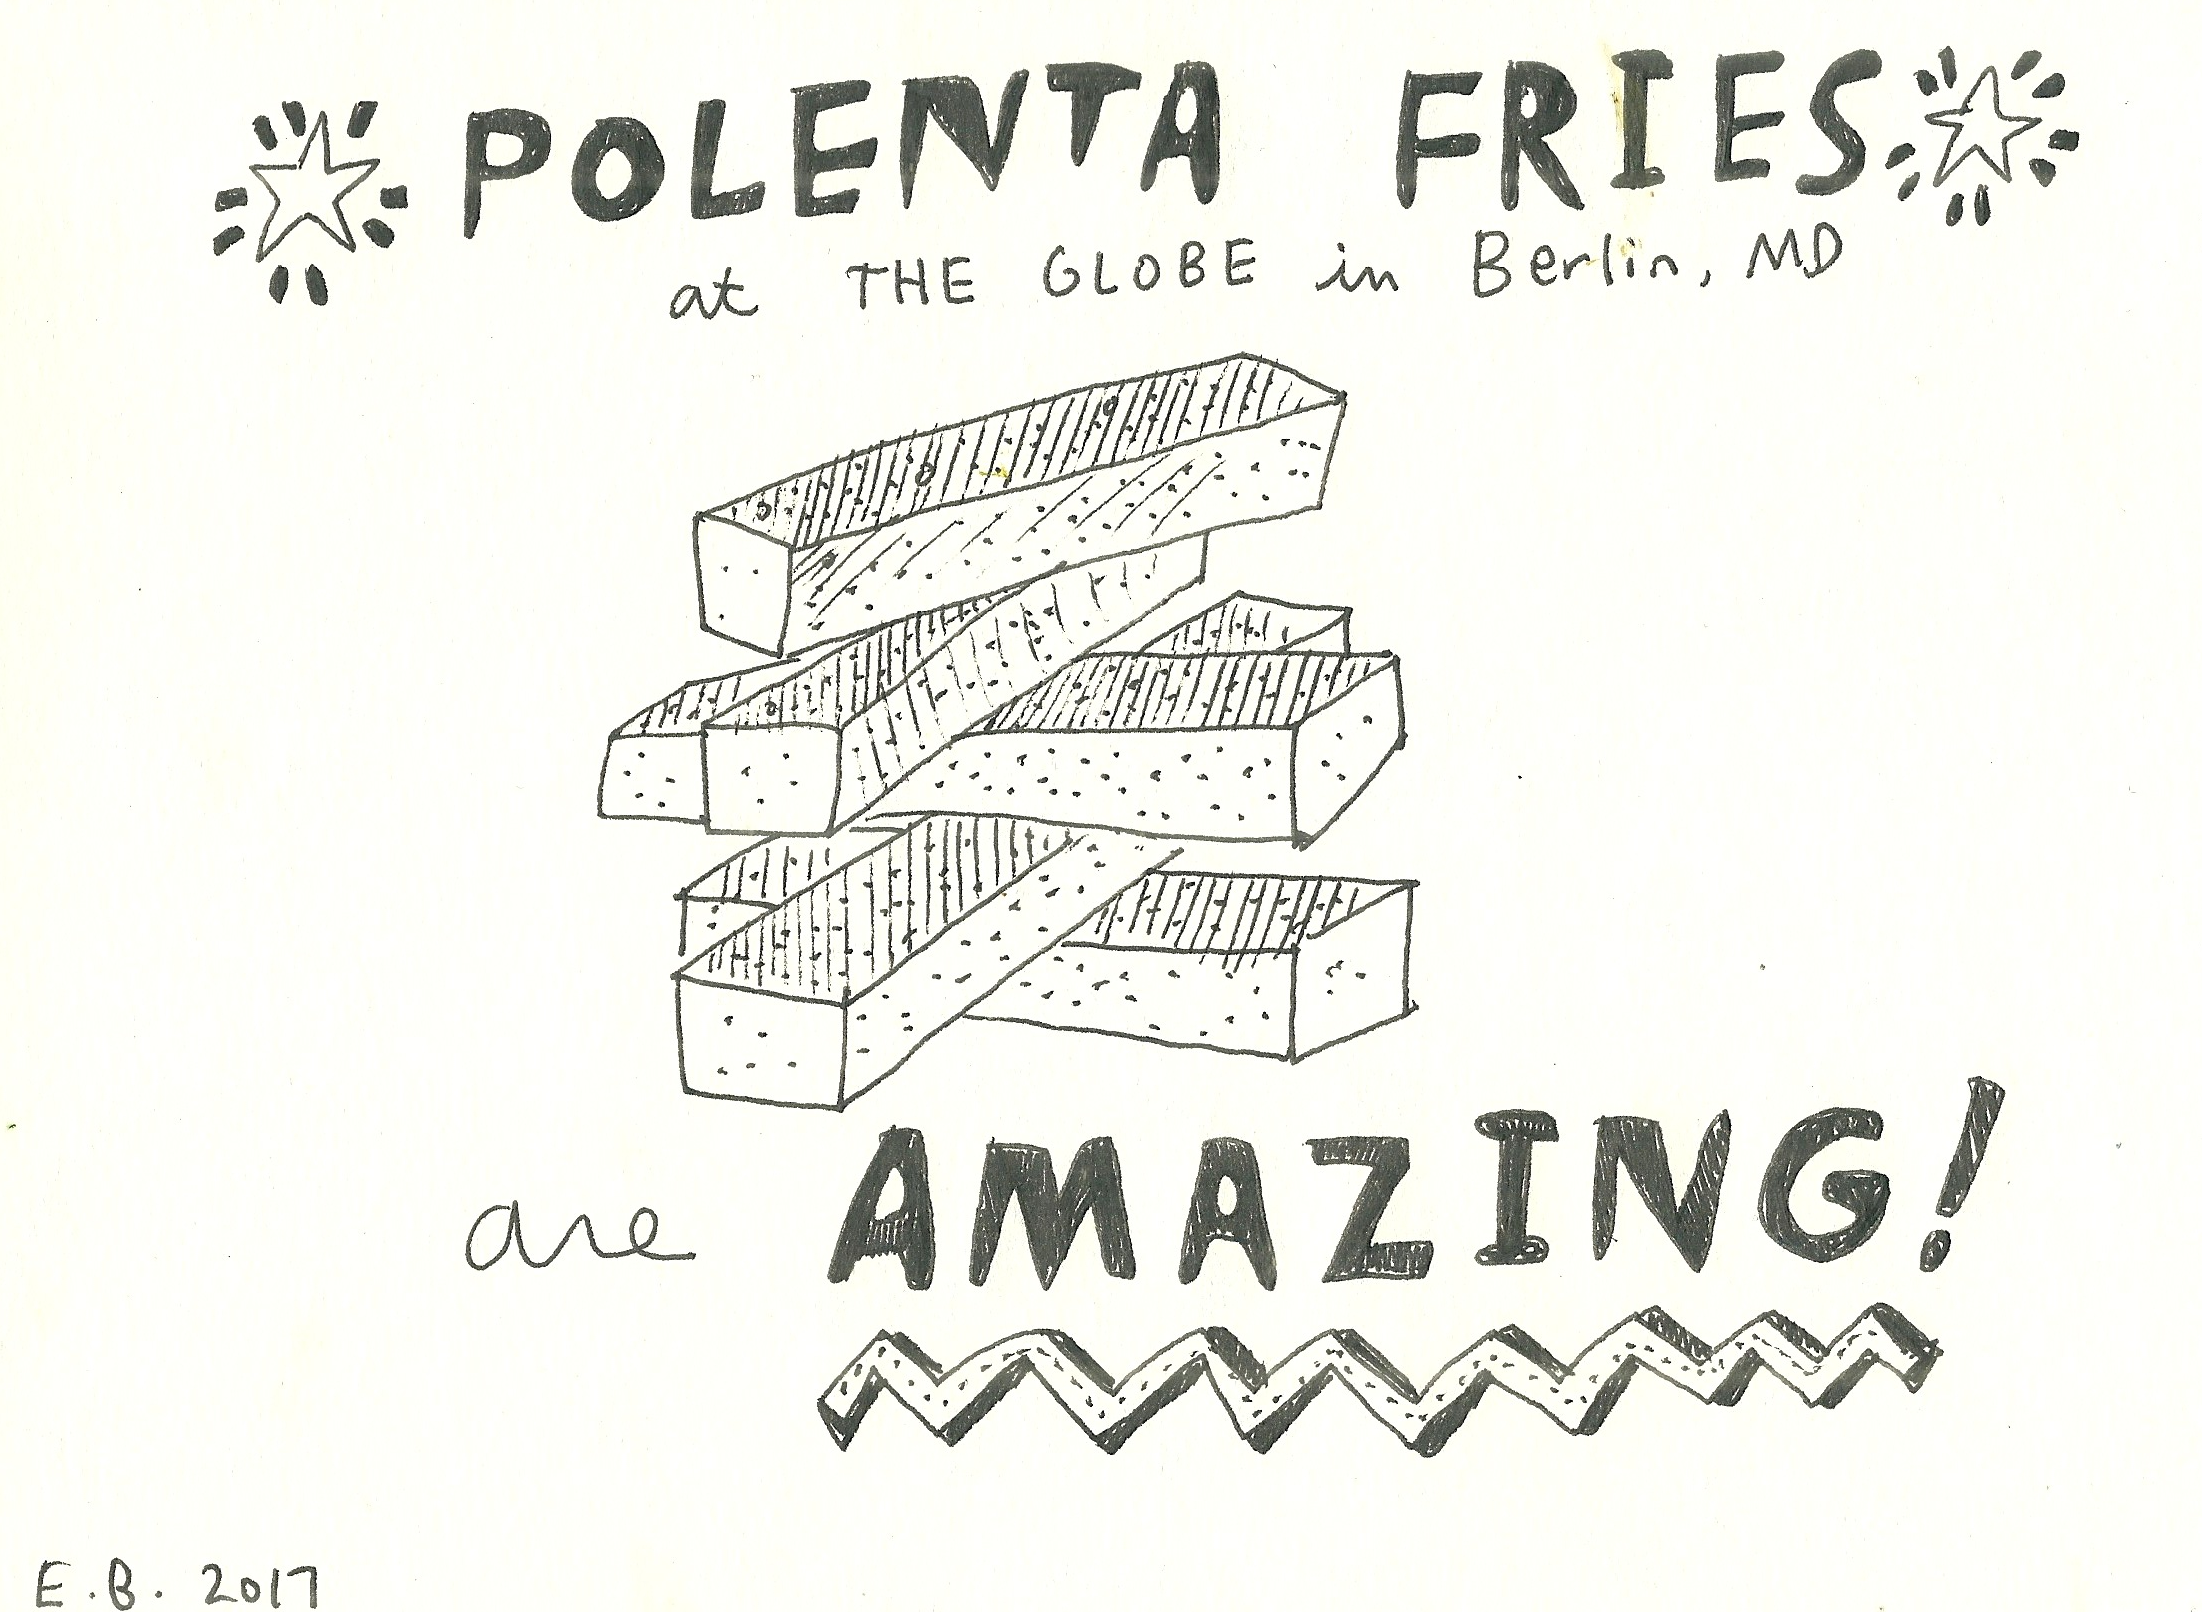 POLENTA FRIES
at THE GLOBE in Berlin, MD
are AMAZING!
E.B. 2017